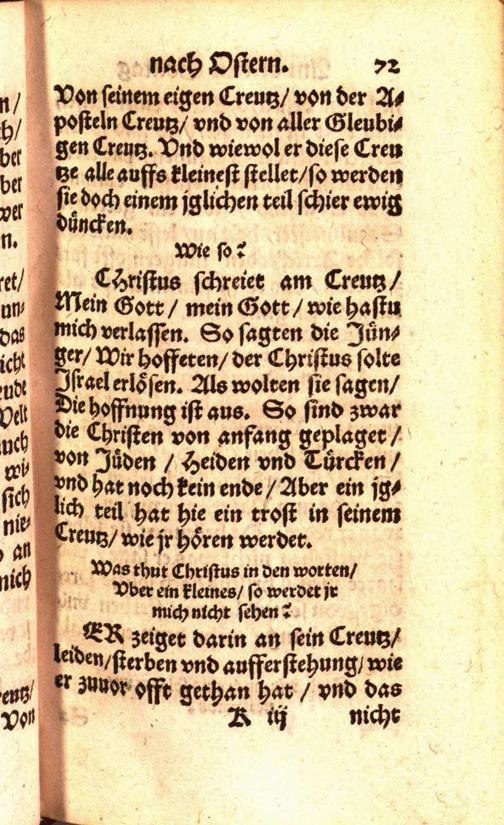 n/
ch/
ber
ber
wer
n.
ret/
un-
das
icht
eude
Welt
auch
wi-
sich
nie-
o an
mich
reutz/
Von
nach Ostern. 72
Von seinem eigen Creutz/ von der A-
posteln Creutz/ vnd von aller Gleubi-
gen Creutz. Vnd wiewol er diese Creu
tze alle auffs kleinest stellet/ so werden
sie doch einem jglichen teil schier ewig
düncken.
Wie so?
CHristus schreiet am Creutz/
Mein Gott/ mein Gott/ wie hastu
mich verlassen. So sagten die Jün-
ger/ Wir hoffeten/ der Christus solte
Israel erlösen. Als wolten sie sagen/
Die hoffnung ist aus. So sind zwar
die Christen von anfang geplaget/
von Jüden/ Heiden vnd Türcken/
vnd hat noch kein ende/ Aber ein jg-
lich teil hat hie ein trost in seinem
Creutz/ wie jr hören werdet.
Was thut Christus in den worten/
Vber ein kleines/ so werdet jr
mich nicht sehen?
ER zeiget darin an sein Creutz/
leiden/ sterben vnd aufferstehung/ wie
er zuuor offt gethan hat/ vnd das
K iij nicht